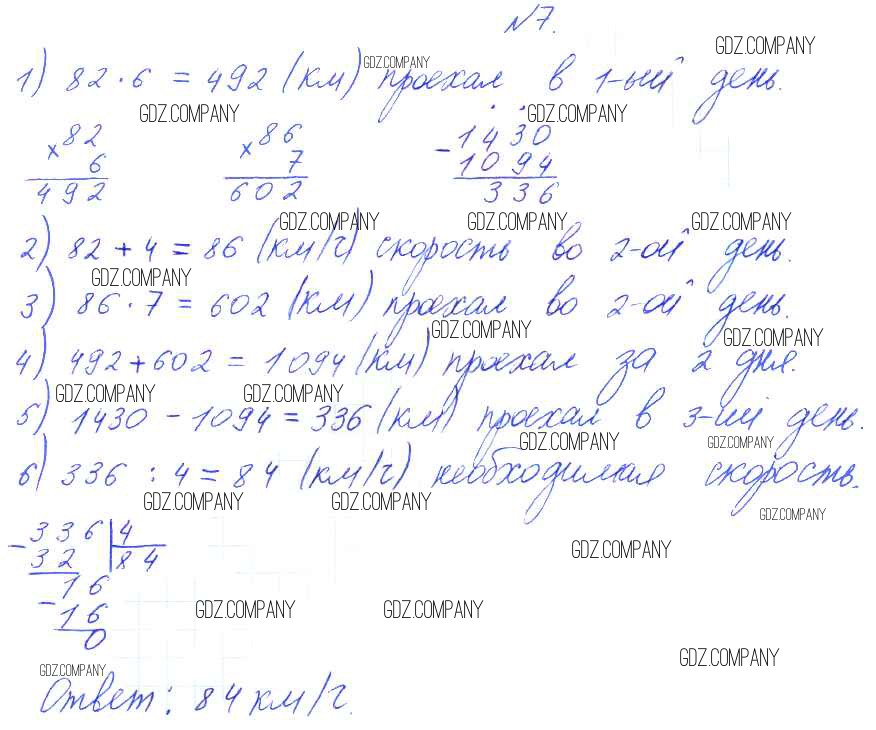 №7.
GDZ.COMPANY
1) 82 · 6 = 492 (км) проехал в 1-ый день.
GDZ.COMPANY
GDZ.COMPANY GDZ.COMPANY
× 82 × 86 - 1430
6 7 1094
492 602 336
GDZ.COMPANY GDZ.COMPANY GDZ.COMPANY
2) 82 + 4 = 86 (км/ч) скорость во 2-ой день.
GDZ.COMPANY
3) 86 · 7 = 602 (км) проехал во 2-ой день.
GDZ.COMPANY GDZ.COMPANY
4) 492 + 602 = 1094 (км) проехал за 2 дня.
GDZ.COMPANY GDZ.COMPANY
5) 1430 - 1094 = 336 (км) проехал в 3-ий день.
GDZ.COMPANY GDZ.COMPANY
6) 336 : 4 = 84 (км/ч) необходимая скорость.
GDZ.COMPANY GDZ.COMPANY GDZ.COMPANY
- 336 | 4
32 | 84
GDZ.COMPANY
- 16
16
GDZ.COMPANY GDZ.COMPANY
0
GDZ.COMPANY
GDZ.COMPANY
Ответ: 84 км/ч.